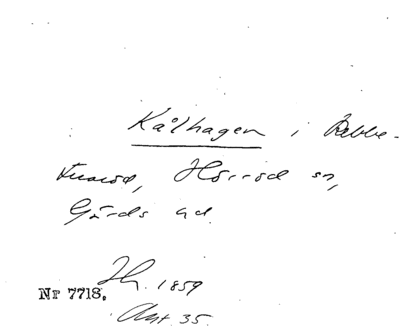 Kålhagen i Rebbe-
tuaröd, Hörröd sn,
Gärds hd.
Nr 7718.
1859
Akt. 35.